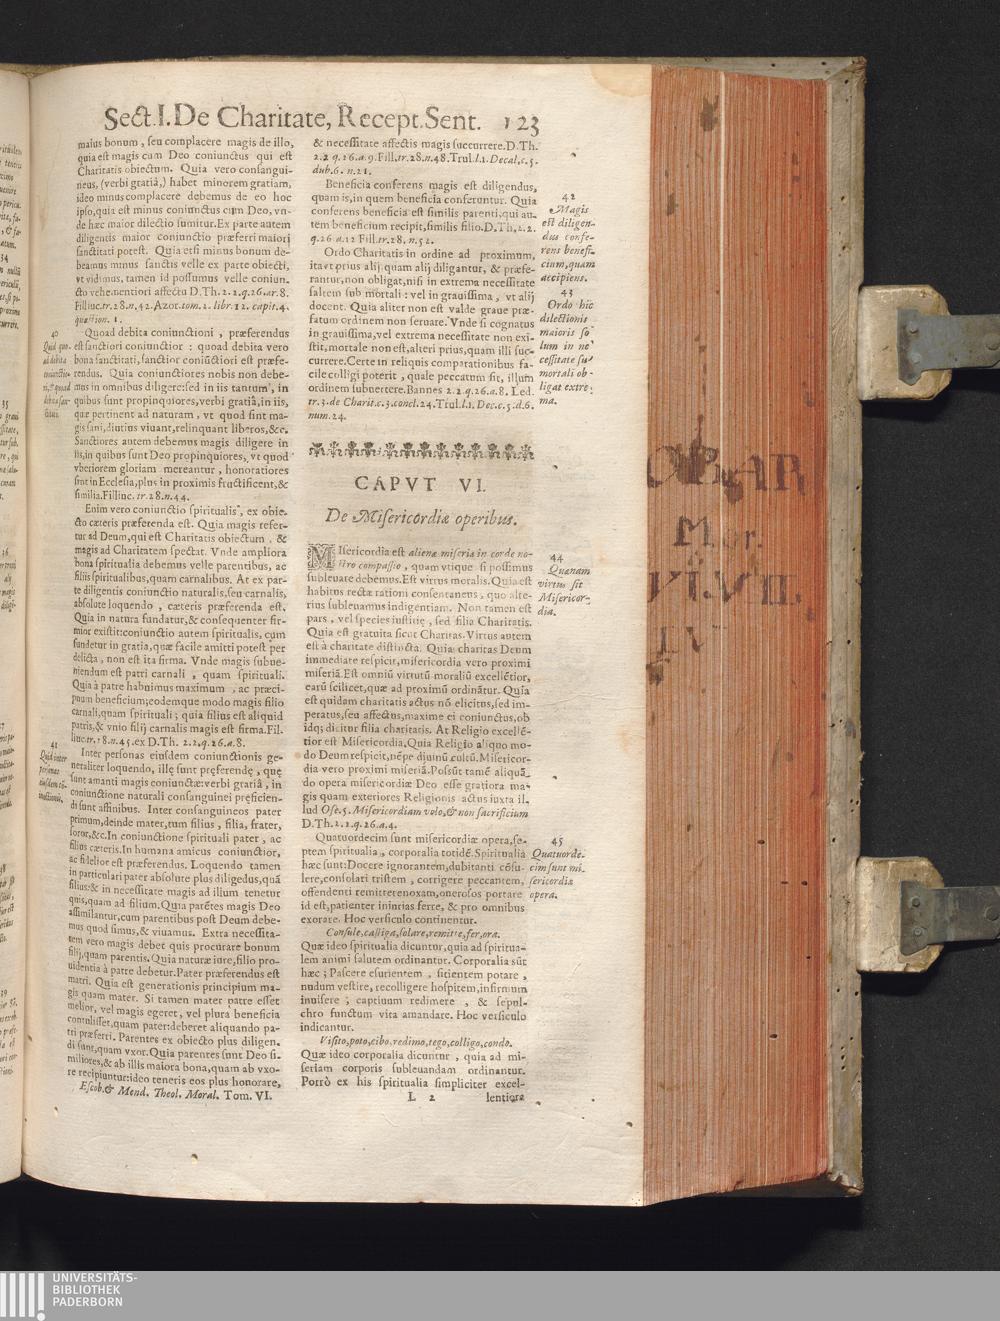 Sect.I.De Charitate, Recept.Sent. 123
maius bonum, seu complacere magis de illo,
quia est magis cum Deo coniunctus qui est
Charitatis obiectum. Quia vero consangui-
neus, (verbi gratiâ,) habet minorem gratiam,
ideo minus complacere debemus de eo hoc
ipso, quia est minus coniunctus cum Deo, vn-
de hæc maior dilectio sumitur. Ex parte autem
diligentis maior coniunctio præferri maiori
sanctitati potest. Quia etsi minus bonum de-
beamus minus sanctis velle ex parte obiecti,
vt vidimus, tamen id possumus velle coniun-
cto vehementiori affectu D.Th.2.2.q.26.ar.8.
Filliuc.tr.28.n.42.Azor.tom.2.libr.12.capit.4.
quæstion.1.
40
Quod debita coniunctioni, præferendus
est sanctiori coniunctior : quoad debita vero
bona sanctitati, sanctior coniūctiori est præfe-
rendus. Quia coniunctiores nobis non debe-
mus in omnibus diligere: sed in iis tantum, in
quibus sunt propinquiores, verbi gratiâ, in iis,
que pertinent ad naturam, vt quod sint ma-
gis sani, diutius viuant, relinquant liberos, &c.
Sanctiores autem debemus magis diligere in
iis, in quibus sunt Deo propinquiores, vt quod
vberiorem gloriam mereantur, honoratiores
sint in Ecclesia, plus in proximis fructificent, &
similia.Filliuc.tr.28.n.44.
Enim vero coniunctio spiritualis, ex obie-
cto cæteris præferenda est. Quia magis refer-
tur ad Deum, qui est Charitatis obiectum, &
magis ad Charitatem spectat. Vnde ampliora
bona spiritualia debemus velle parentibus, ac
filiis spiritualibus, quam carnalibus. At ex par-
te diligentis coniunctio naturalis, seu carnalis,
absolute loquendo, cæteris præferenda est.
Quia in natura fundatur, & consequenter fir-
mior existit: coniunctio autem spiritualis, cum
fundetur in gratia, quæ facile amitti potest per
delicta, non est ita firma. Vnde magis subue-
niendum est patri carnali, quam spirituali.
Quia à patre habuimus maximum, ac præci-
puum beneficium; eodemque modo magis filio
carnali, quam spirituali; quia filius est aliquid
patris, & vnio filij carnalis magis est firma. Fil-
liuc.tr.28.n.45.ex D.Th. 2.2.q.26.a.8.
41
Inter personas eiusdem coniunctionis ge-
neraliter loquendo, illę sunt pręferendę, quę
sunt amanti magis coniunctæ: verbi gratiâ, in
coniunctione naturali consanguinei præficien-
di sunt affinibus. Inter consanguineos pater
primum, deinde mater, tum filius, filia, frater,
soror, &c. In coniunctione spirituali pater, ac
filius cæteris. In humana amicus coniunctior,
ac fidelior est præferendus. Loquendo tamen
in particulari pater absolute plus diligedus, quā
filius: & in necessitate magis ad illum tenetur
quis, quam ad filium. Quia parētes magis Deo
assimilantur, cum parentibus post Deum debe-
mus quod simus, & viuamus. Extra necessita-
tem vero magis debet quis procurare bonum
filij, quam parentis. Quia naturæ iure, filio pro-
uidentia à patre debetur. Pater præferendus est
matri. Quia est generationis principium ma-
gis quam mater. Si tamen mater patre esset
melior, vel magis egeret, vel plura beneficia
contulisset, quam pater: deberet aliquando pa-
tri præferri. Parentes ex obiecto plus diligen-
di sunt, quam vxor. Quia parentes sunt Deo si-
miliores, & ab illis maiora bona, quam ab vxo-
re recipiuntur: ideo teneris eos plus honorare,
Escob.& Mend. Theol. Moral. Tom. VI.
& necessitate affectis magis succurrere. D.Th.
2.2 q.26.a.9.Fill.tr.28.n.48.Trul.l.1.Decal.c.5.
dub.6. n.21.
Beneficia conferens magis est diligendus,
quam is, in quem beneficia conferuntur. Quia
conferens beneficia est similis parenti, qui au-
tem beneficium recipit, similis filio. D.Th.2.2.
q.26 a.12 Fill.tr.28. n.52.
Ordo Charitatis in ordine ad proximum,
ita vt prius alij quam alij diligantur, & præfe-
rantur, non obligat, nisi in extrema necessitate
saltem sub mortali : vel in grauissima, vt alij
docent. Quia aliter non est valde graue præ-
fatum ordinem non seruare. Vnde si cognatus
in grauissima, vel extrema necessitate non exi-
stit, mortale non est, alteri prius, quam illi suc-
currere. Certe in reliquis comparationibus fa-
cile colligi poterit, quale peccatum sit, illum
ordinem subuertere. Bannes 2.2.q.26.a.8. Led.
tr.3.de Charit.c.3.concl.24.Trul.l.1.Dec.c.5.d.6.
num.24.
42
Magis
est diligen-
dus confe-
rens benefi-
cium, quam
accipiens.
43
Ordo hic
dilectionis
maioris so
lum in ne
cessitate su
mortali ob-
ligat extre-
ma.
CAPVT VI.
De Misericordiæ operibus.
MIsericordia est alienæ miseriæ in corde no-
stro compassio, quam vtique si possimus
subleuare debemus. Est virtus moralis. Quia est
habitus rectæ rationi consentaneus, quo alte-
rius subleuamus indigentiam. Non tamen est
pars, vel species iustitię, sed filia Charitatis.
Quia est gratuita sicut Charitas. Virtus autem
est à charitate distincta. Quia charitas Deum
immediate respicit, misericordia vero proximi
miseriā. Est omniū virtutū moraliū excellētior,
earū scilicet, quæ ad proximū ordinātur. Quia
est quidam charitatis actus nō elicitus, sed im-
peratus, seu affectus, maxime ei coniunctus, ob
idq; dicitur filia charitatis. At Religio excellē-
tior est Misericordia. Quia Religio aliquo mo-
do Deum respicit, nēpe diuinū cultū. Misericor-
dia vero proximi miseriā. Possūt tamē aliquā-
do opera misericordiæ Deo esse gratiora ma-
gis quam exteriores Religionis actus iuxta il-
lud Ose.5. Misericordiam volo, & non sacrificium
D.Th.2.2.q.26.a.4.
44
Quænam
virtus sit
Misericor-
dia.
Quatuordecim sunt misericordiæ opera, se-
ptem spiritualia, corporalia totidē. Spiritualia
hæc sunt: Docere ignorantem, dubitanti cōsu-
lere, consolari tristem, corrigere peccantem,
offendenti remittere noxam, onerosos portare
id est, patienter iniurias ferre, & pro omnibus
exorare. Hoc versiculo continentur.
Consule, castiga, solare, remitte, fer, ora.
Quæ ideo spiritualia dicuntur, quia ad spiritua-
lem animi salutem ordinantur. Corporalia sūt
hæc; Pascere esurientem, sitientem potare,
nudum vestire, recolligere hospitem, infirmum
inuisere, captiuum redimere, & sepul-
chro functum vita amandare. Hoc versiculo
indicantur.
Visito, poto, cibo, redimo, tego, colligo, condo.
Quæ ideo corporalia dicuntur, quia ad mi-
seriam corporis subleuandam ordinantur.
Porrò ex his spiritualia simpliciter excel-
45
Quatuorde-
cim sunt mi-
sericordiæ
opera.
L 2 lentiora
UNIVERSITÄTS-
BIBLIOTHEK
PADERBORN